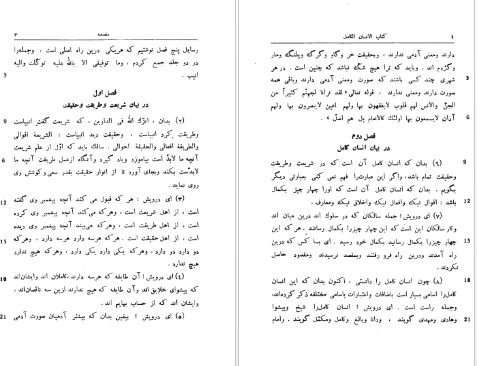 مقدمه ۳
رسایل پنج فصل نوشتیم که هریکی درین راه اصلی است ، وجمله‌را
در دو جلد جمع کردم ، وما توفیقی الا بالله علیه توکلت والیه
انیب . 3
فصل اول
در بیان شریعت وطریقت وحقیقت
(۲) بدان ، اعزّك الله فی الدارین ، که شریعت گفت انبیاست 6
وطریقت کرد انبیاست ، وحقیقت دید انبیاست : الشریعة اقوالی
والطریقة افعالی والحقیقة احوالی . سالك باید که اوّل از علم شریعت
آنچه ما لابدّ است بیاموزد ویاد گیرد وآنگاه ازعمل طریقت آنچه ما 9
لابدّست بکند وبجای آورد تا از انوار حقیقت بقدر سعی وکوشش وی
روی نماید .
(۳) ای درویش ! هر که قبول می کند آنچه پیغمبر وی گفته 12
است ، از اهل شریعت است ، وهرکه می‌کند آنچه پیغمبر وی کرده
است ، از اهل طریقت است ، وهرکه می‌بیند آنچه پیغمبر وی دیده
است ، از اهل حقیقت است . هرکه هرسه دارد هرسه دارد ، وهرکه 15
دو دارد دو دارد ، وهرکه یکی دارد یکی دارد ، وهرکه هیچ ندارد
هیچ ندارد .
(۴) ای درویش ! آن طایفه که هرسه دارند، کاملان اند وایشان‌اند 18
که پیشوای خلایق اند وآن طایفه که هیچ ندارند ازین سه ناقصان‌اند،
وایشان اند که از حساب بهایم اند .
(۵) ای درویش ! بیقین بدان که بیشتر آدمیان صورت آدمی 21
٤ کتاب الانسان الکامل
دارند ومعنی آدمی ندارند ، وبحقیقت خر وگاو وگرگ وپلنگ ومار
وکژدم اند . وباید که ترا هیچ شك نباشد که چنین است . در هر
شهری چند کسی باشند که صورت ومعنی آدمی دارند وباقی همه 3
صورت دارند ومعنی ندارند ، قوله تعالی «لقد ذرأنا لجهنّم کثیراً من
الجنّ والأنس لهم قلوب لایفقهون بها ولهم اعین لایبصرون بها ولهم
آذان لایسمعون بها اولئك کالانعام بل هم اضلّ» . 6
فصل دوم
در بیان انسان کامل
(۶) بدان که انسان کامل آن است که در شریعت وطریقت 9
وحقیقت تمام باشد، واگر این عبارت‌را فهم نمی کنی بعبارتی دیگر
بگویم . بدان که انسان کامل آن است که اورا چهار چیز بکمال
باشد : اقوال نیك وافعال نیك واخلاق نیك ومعارف . 12
(۷) ای درویش ! جمله سالکان که در سلوك اند درین میان اند
وکار سالکان این است که این چهار چیزرا بکمال رسانند. هرکه این
چهار چیزرا بکمال رسانید بکمال خود رسید . ای بسا کس که درین 15
راه آمدند ودرین راه فرو رفتند وبمقصد نرسیدند ومقصود حاصل
نکردند .
(۸) چون انسان کامل را دانستی ، اکنون بدان که این انسان 18
کامل‌را اسامی بسیار است باضافات واعتبارات باسامی مختلفه ذکر کرده‌اند،
وجمله راست است . ای درویش ! انسان کامل‌را شیخ وپیشوا
وهادی ومهدی گویند ، ودانا وبالغ وکامل ومکمّل گویند ، وامام 21